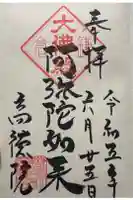 奉拝
令和五年
六月廿五日
大佛
阿弥陀如来
高徳院